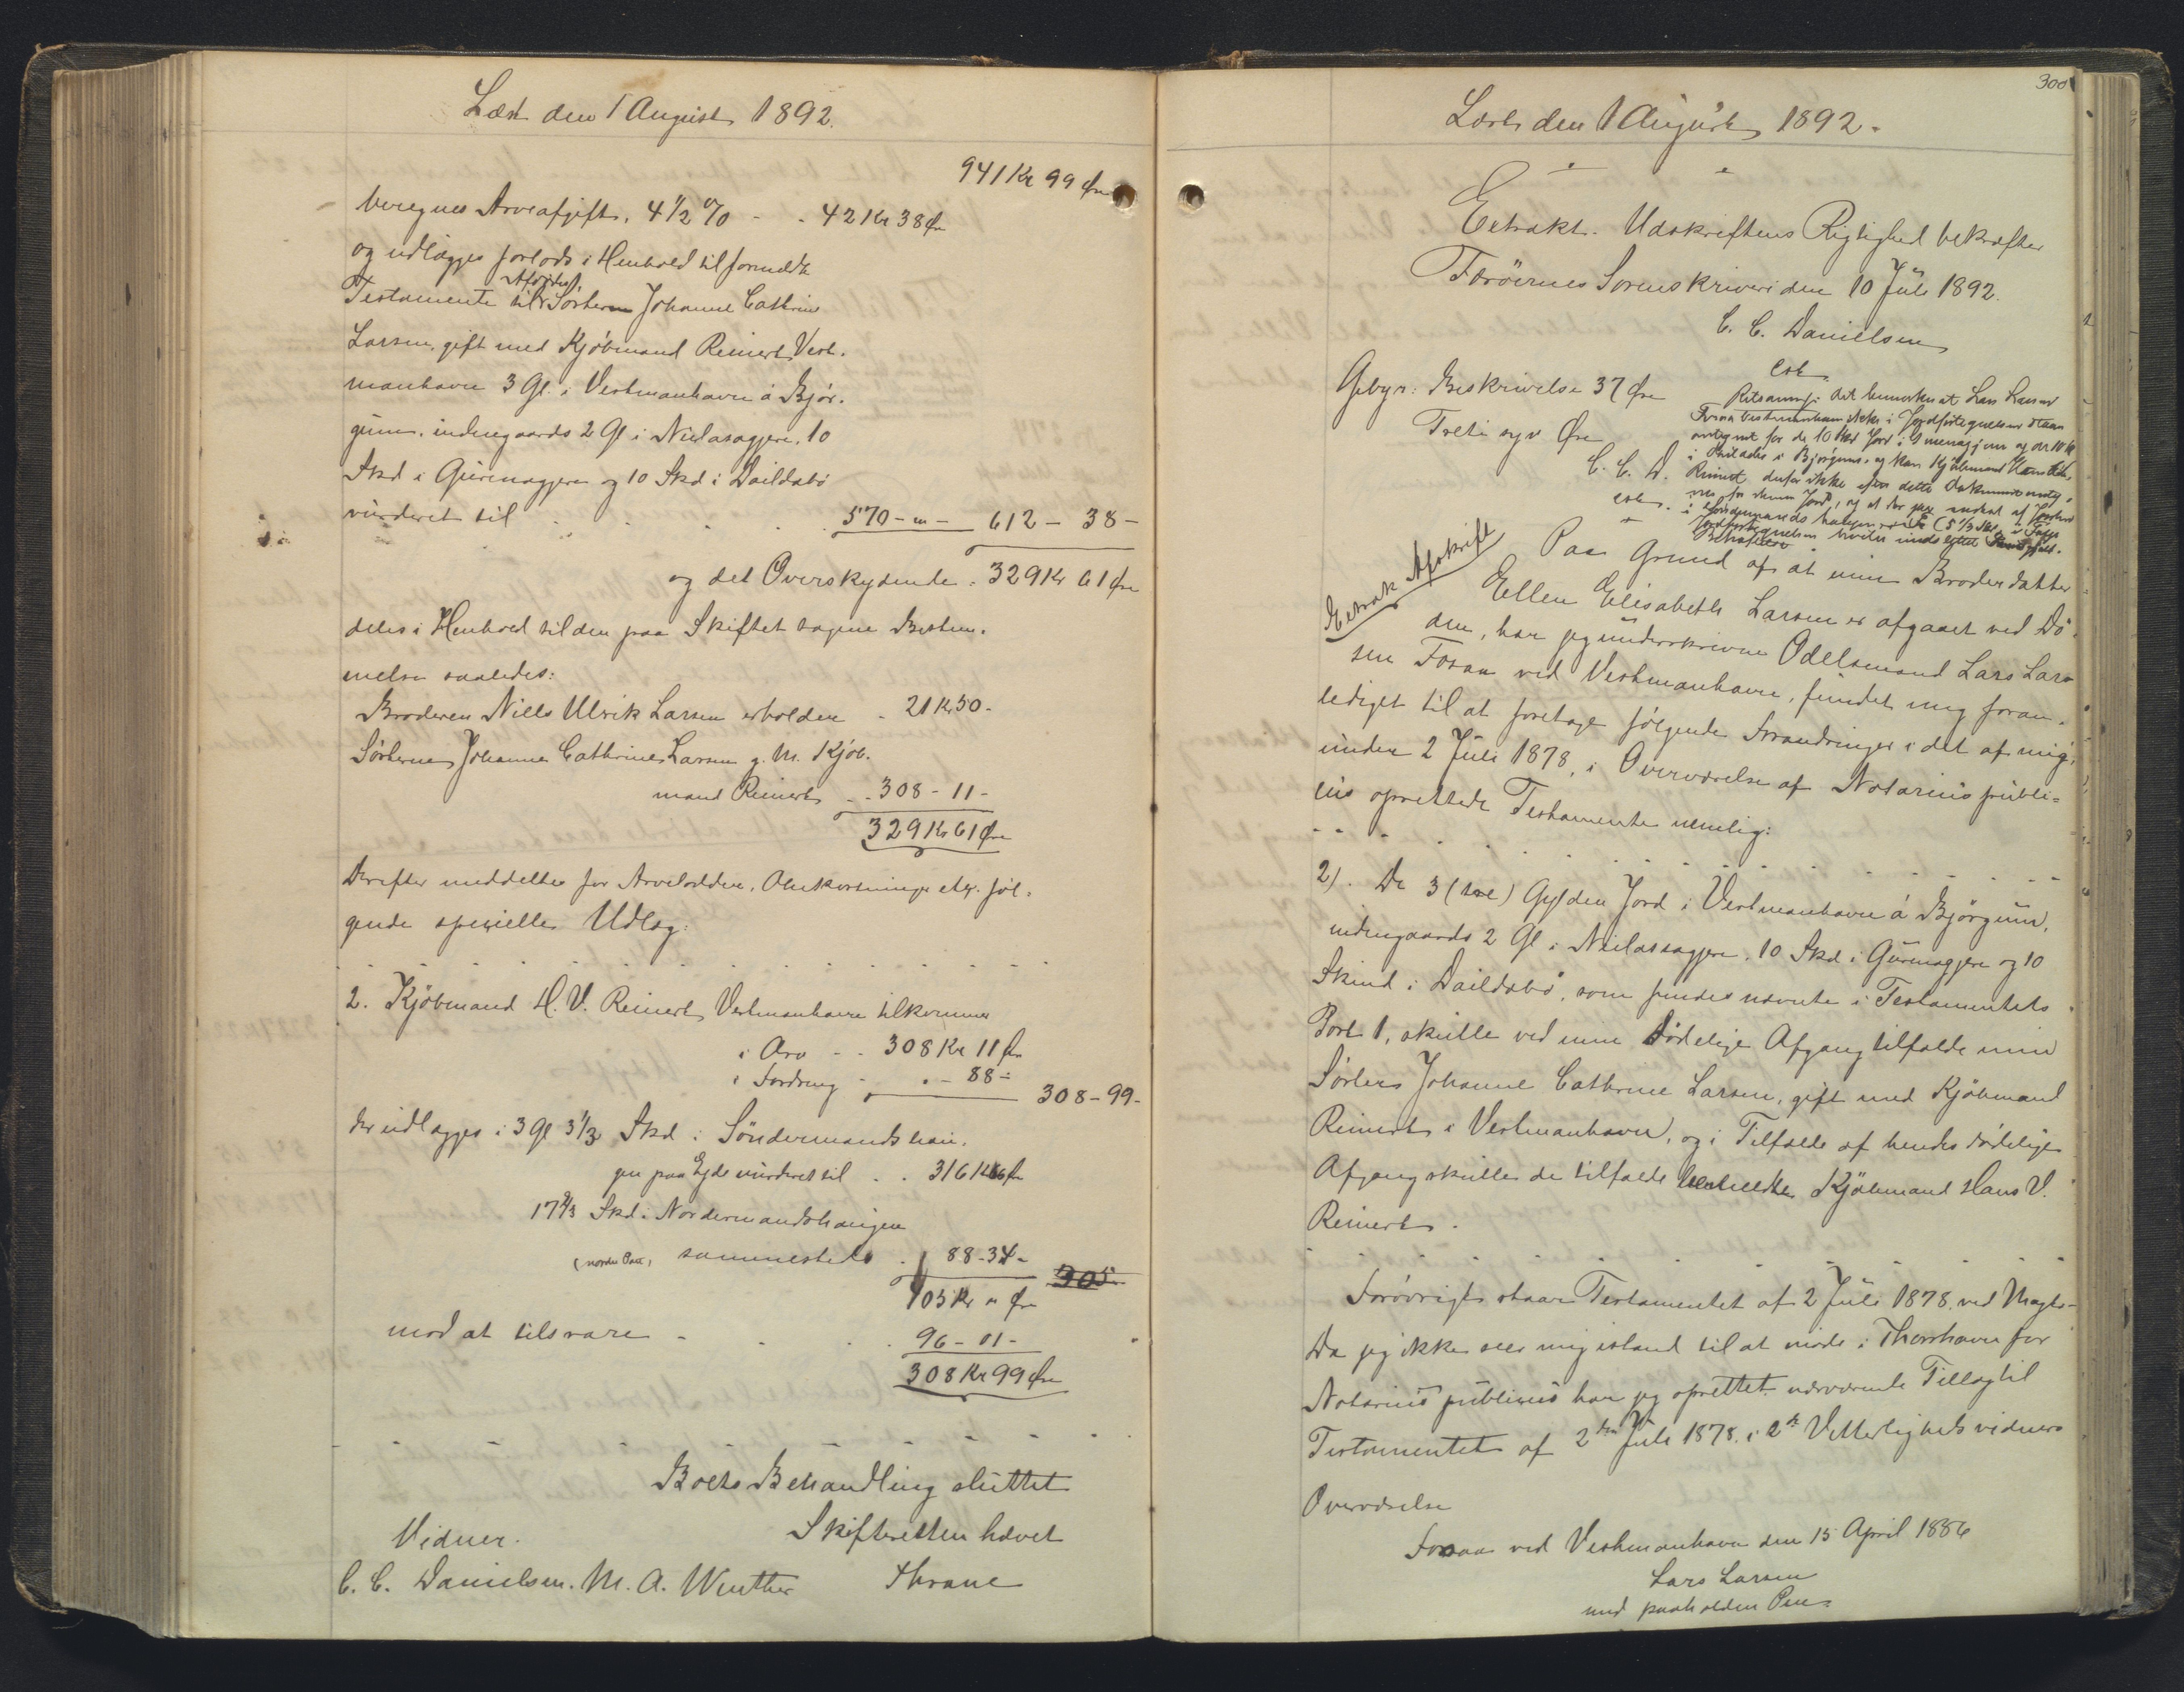 Læst den 1 August 1892.
941 Kr 99 Øre
beregnes Arveafgift, 4 1/2 % - - 42 Kr 38 Øre
og udlægges forlods i Henhold til formeldte
Afdødes
Testamente til Søsteren Johanne Cathrine
Larsen, gift med Kjøbmand Reinert Vest-
manhavn 3 Gl. i Vestmanhavn á Bjør-
gum, indengaards 2 Gl i Nielasagjere, 10
Skd i Gurmagjere og 10 Skd i Daildabø
vurderet til . . . . 570 - " - 612 - 38 -
og det Overskydende . 329 Kr 61 Øre
deles i Henhold til den paa Skiftet tagne Bestem-
melse saaledes:
Broderen Niels Ulrik Larsen erholder - 21 Kr 50 -
Søsteren Johanne Cathrine Larsen g. m. Kjøb-
mand Reinert - - 308 - 11 -
329 Kr 61 Øre
Derefter meddeltes for Arvelodder, Omkostninger etc. føl-
gende specielle Udlæg:
- - - - - - - - - - - -
2. Kjøbmand H. V. Reinert, Vestmanhavn tilkommer
i Arv - - 308 Kr 11 Øre
i Fordring - " - 88 -
308 - 99 -
der udlægges i 3 Gl 3 1/3 Skd i Søndermandshau-
gen paa Ejde vurderet til . . 316 Kr 66 Øre
17 2/3 Skd i Nordermandshaugen
(norder Part) sammesteds . 88 - 34 -
305
405 Kr " Øre
mod at tilsvare - - - 96 - 01 -
308 Kr 99 Øre
- - - - - - - - - -
Boets Behandling sluttet
Vidner. Skifteretten hævet
C. C. Danielsen. M. A. Winther Thrane
300
Læst den 1 August 1892.
Extrakt. Udskriftens Rigtighed bekræfter
Færøernes Sorenskriveri den 10 Juli 1892.
C. C. Danielsen
cst.
Gebyr: Beskrivelse 37 Øre
Treti syv Øre
C. C. D.
cst.
Retsanm: Det bemærkes at Lars Larsen
Fosaa Vestmanhavn ikke i Jordfortegnelsen staar
antegnet for de 10 Skd Jord i Gurmagjere og de 10 Skd
i Daildabø i Bjørgum, og kan Kjøbmand Hans
Reinert derfor ikke efter dette Dokument anteg-
nes for denne Jord, og at der
i Søndermands haugen (5 1/3 Skd
Jordfortegnelsen
Extrakt Afskrift
Paa Grund af at min Broderdatter
Ellen Elisabeth Larsen er afgaaet ved Dø-
den, har jeg underskrevne Odelsmand Lars Lar-
sen Fosaa ved Vestmanhavn, fundet mig foran-
lediget til at foretage følgende Forandringer i det af mig,
under 2 Juli 1878, i Overværelse af Notarius publi-
cus oprettede Testamente nemlig:
- - - - - - - - - - - -
2). De 3 (tre) Gylden Jord i Vestmanhavn á Bjørgum,
indengaards 2 Gl i Nielassagjere, 10 Skd i Gurmagjere og 10
Skind i Daildabø, som findes nævnte i Testamentets
Post 1, skulle ved min dødelige Afgang tilfalde min
Søster Johanne Cathrine Larsen, gift med Kjøbmand
Reinert i Vestmanhavn, og i Tilfælde af hendes dødelige
Afgang skulle de tilfalde bemeldte Kjøbmand Hans V.
Reinert.
- - - - - - - - - - - -
Forøvrigt staar Testamentet af 2 Juli 1878 ved Magt.
Da jeg ikke seer mig istand til at møde i Thorshavn for
Notarius publicus har jeg oprettet nærværende Tillæg til
Testamentet af 2den Juli 1878 i 2de Vitterlighedsvidners
Overværelse
Fosaa ved Vestmanhavn den 15 April 1886
Lars Larsen
med paaholden Pen